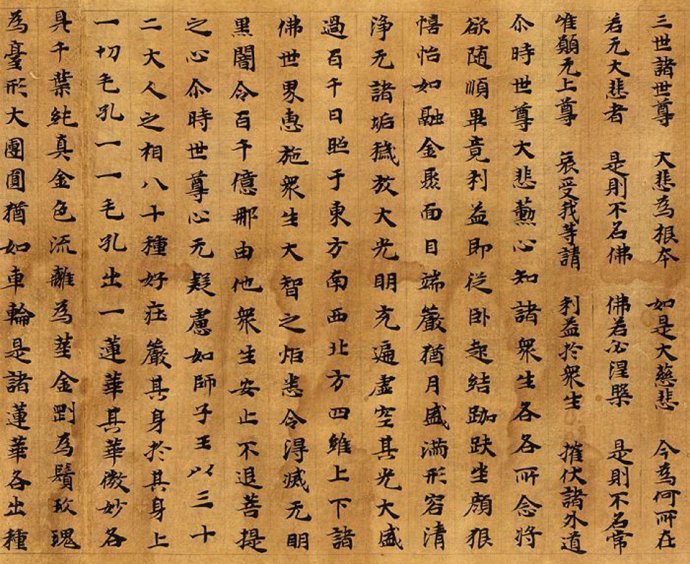 三世諸世尊 大悲為根本 如是大慈悲 今為何所在
若无大悲者 是則不名佛 佛若必涅槃 是則不名常
唯願无上尊 哀受我等請 利益於衆生 摧伏諸外道
尒時世尊大悲勳心知諸衆生各各所念將
欲随順畢竟利益即従卧起結跏趺坐顔貇
憘怡如融金聚面目端嚴猶月盛滿形容清
淨无諸垢穢放大光明充遍虚空其光大盛
過百千日照于東方南西北方四維上下諸
佛世界惠施衆生大智之炬悉令得滅无明
黒闇令百千億那由他衆生安止不退菩提
之心尒時世尊心无疑慮如師子王以三十
二大人之相八十種好荘嚴其身於其身上
一切毛孔一一毛孔出一蓮華其華微妙各
具千葉純真金色流離為莖金剛為鬚玫瑰
為臺形大團圓猶如車輪是諸蓮華各出種